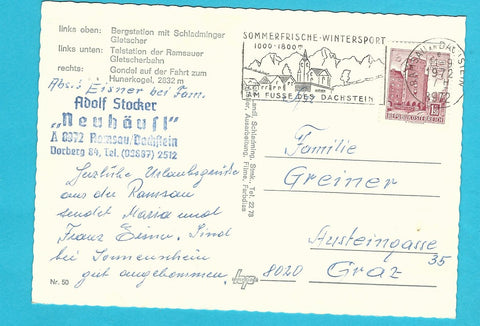 links oben: Bergstation mit Schladminger
Gletscher
links unten: Talstation der Ramsauer
Gletscherbahn
rechts: Gondel auf der Fahrt zum
Hunerkogel, 2832 m
Abs.: Eisner bei Fam.
Adolf Stocker
„Neuhäusl"
A 8972 Ramsau/Dachstein
Vorberg 84, Tel. (03687) 2512
Herzliche Urlaubsgrüße
aus der Ramsau
sendet Maria und
Franz Eisner. Sind
bei Sonnenschein
gut angekommen.
Nr. 50
SOMMERFRISCHE-WINTERSPORT
1000-1800m
AM FUSSE DES DACHSTEIN
RAMSAU AM DACHSTEIN
8972
REPUBLIK ÖSTERREICH
Schladming, Stmk., Tel. 22 78
Ausarbeitung, Filme, Farbdias
Familie
Greiner
Austeingasse
35
8020 Graz